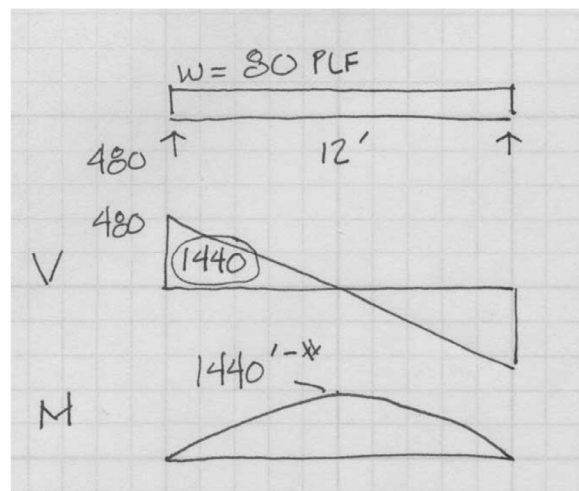 w = 80 PLF
480 12'
480
1440
V
1440'-#
M